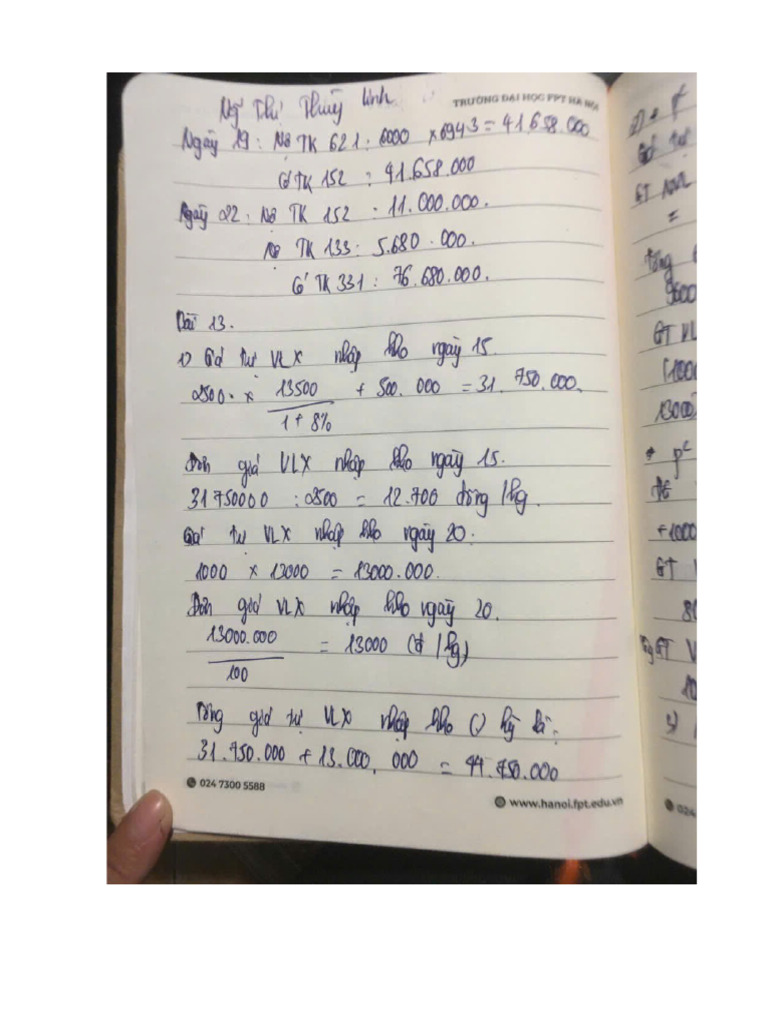 Ng Thị Thuỳ Linh
TRƯỜNG ĐẠI HỌC FPT HÀ NỘI
Ngày 19: Nợ TK 621: 6000 x 6943 = 41.658.000
Có TK 152: 41.658.000
Ngày 22: Nợ TK 152: 11.000.000.
Nợ TK 133: 5.680.000.
Có TK 331: 76.680.000.
Bài 13.
1) Giá trị VLX nhập kho ngày 15.
2500. x 13500 / 1 + 8% + 500.000 = 31.750.000.
Đơn giá VLX nhập kho ngày 15.
31750000 : 2500 = 12.700 đồng/kg.
Giá trị VLX nhập kho ngày 20:
1000 x 13000 = 13000.000.
Đơn giá VLX nhập kho ngày 20.
13000.000 / 100 = 13000 (đ/kg)
Tổng giá trị VLX nhập kho kỳ là:
31.750.000 + 13.000.000 = 44.750.000
024 7300 5588
www.hanoi.fpt.edu.vn
9600
GT VL
(1000
13000)
+1000
GT
024